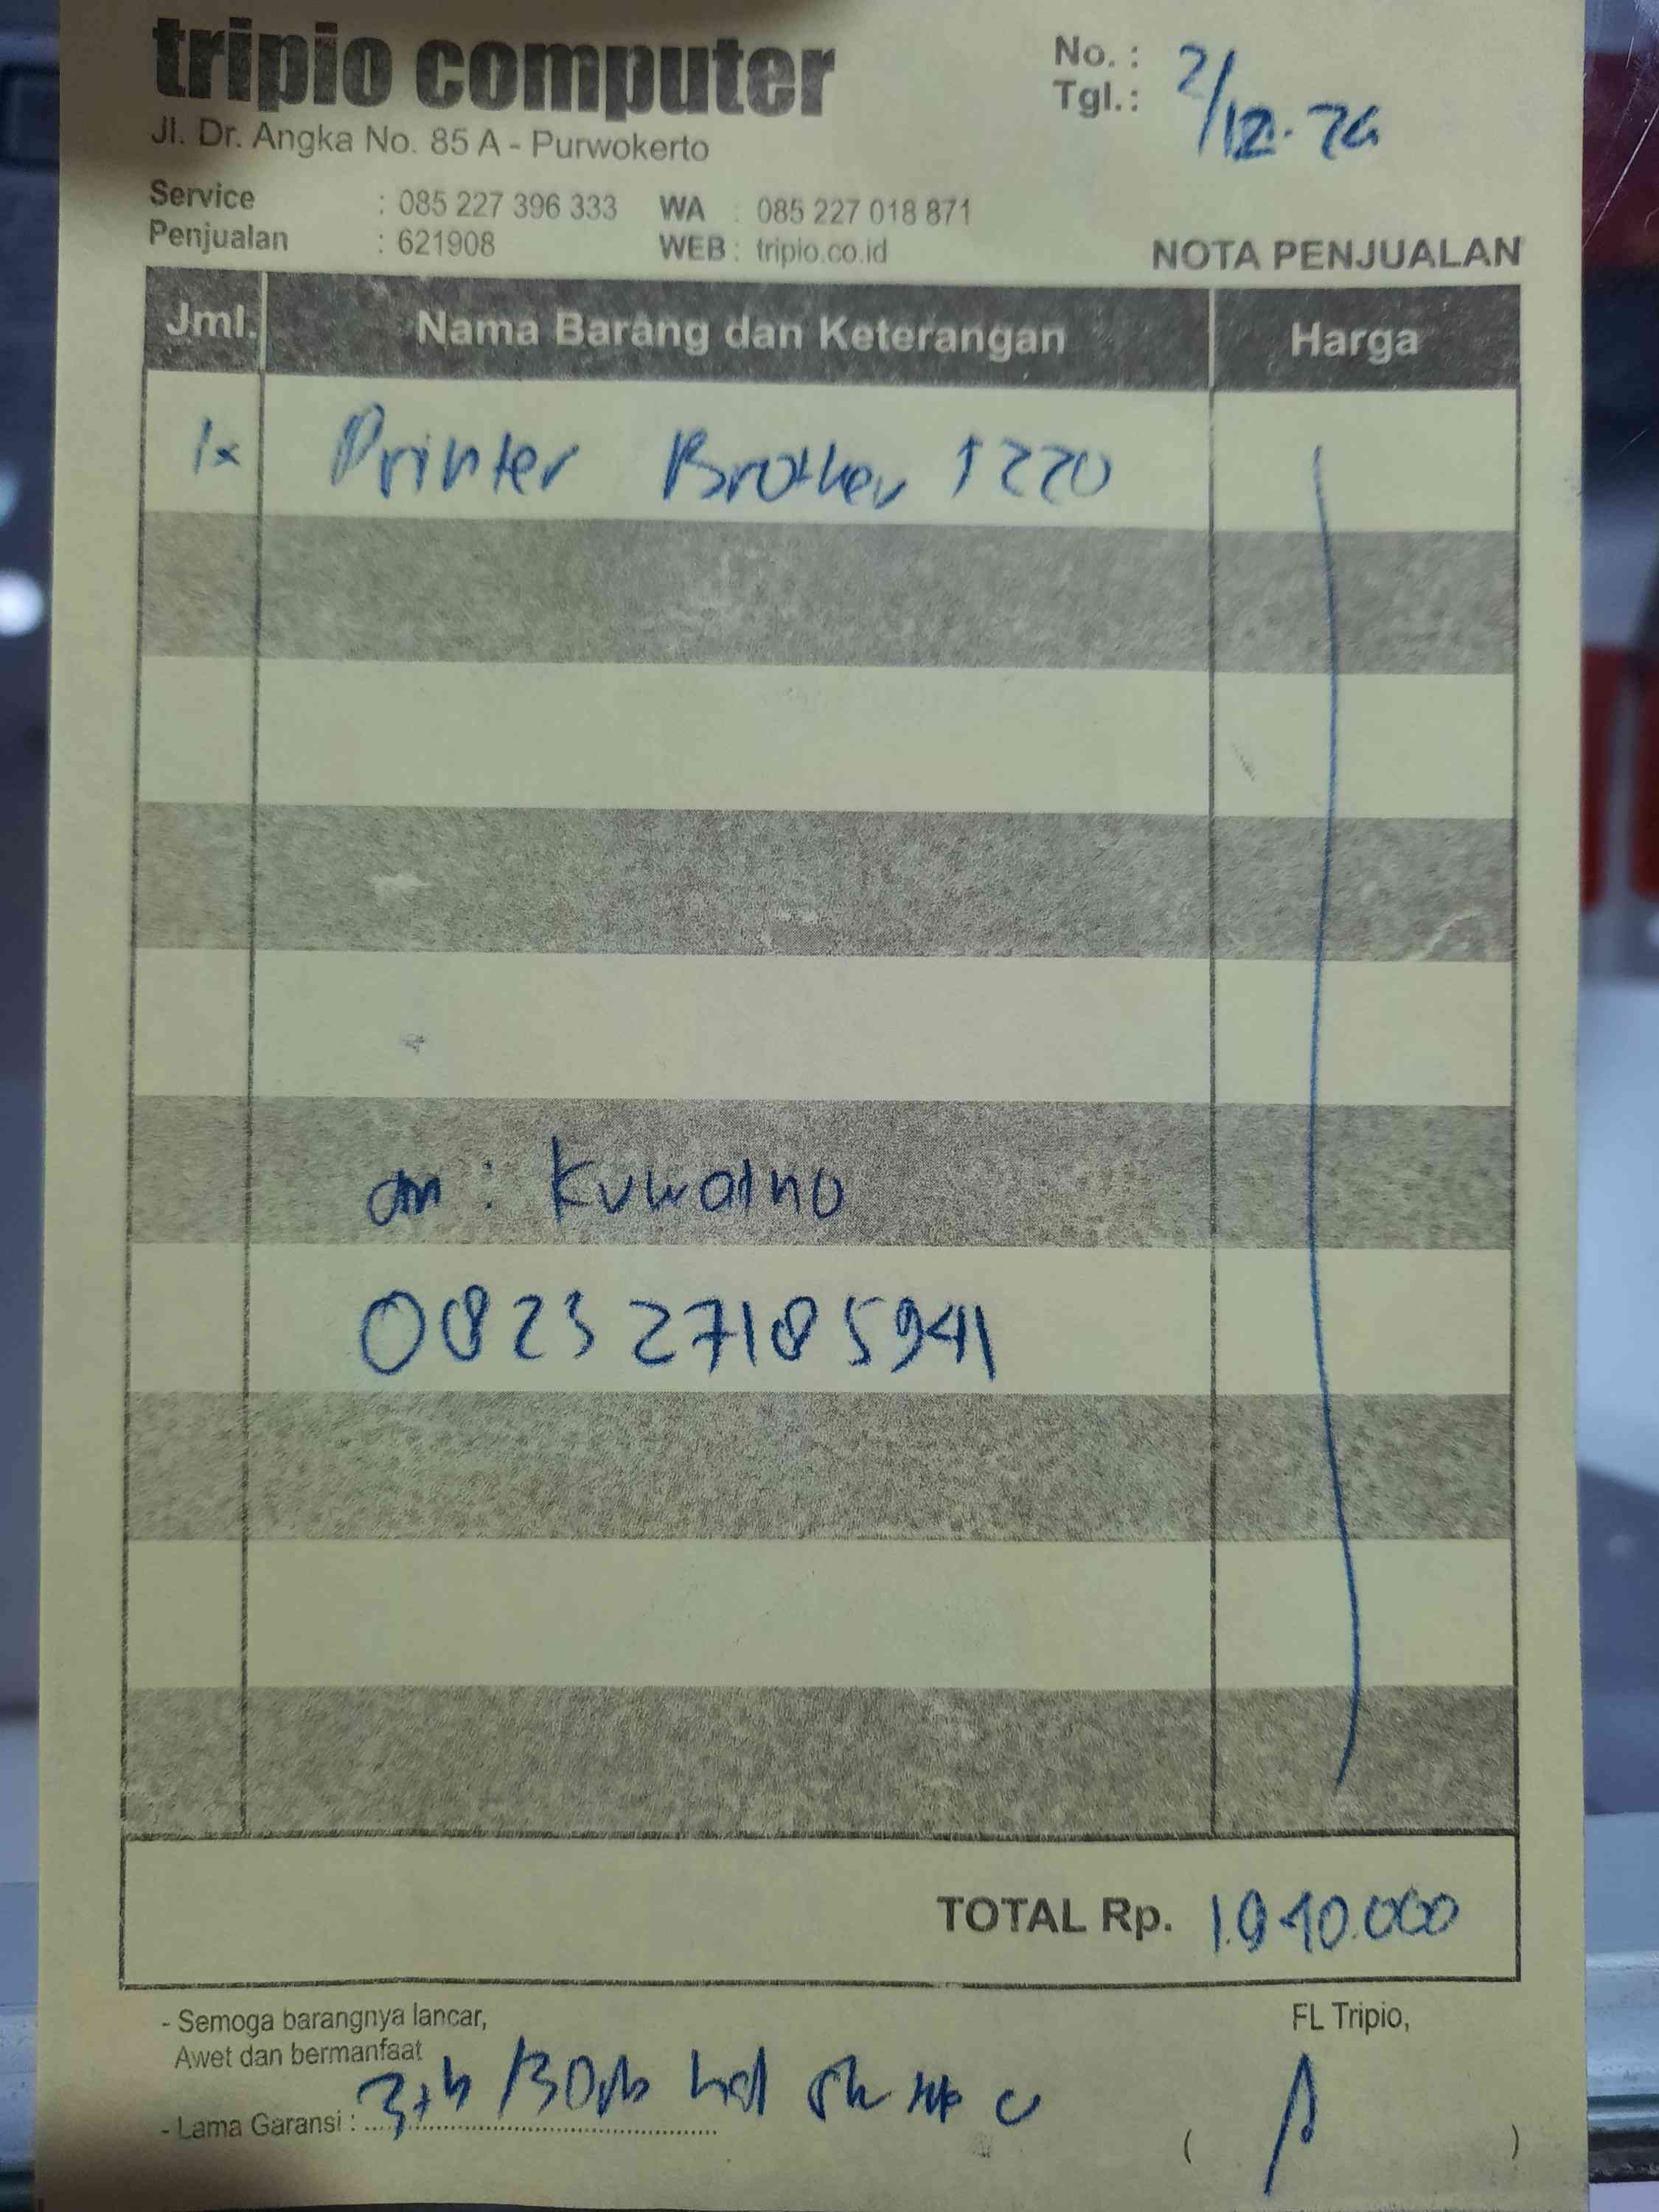 tripio computer
Jl. Dr. Angka No. 85 A - Purwokerto
No. :
Tgl. : 2/12.24
Service : 085 227 396 333 WA : 085 227 018 871
Penjualan : 621908 WEB : tripio.co.id
NOTA PENJUALAN
Jml. Nama Barang dan Keterangan Harga
1x Printer Brother T220
an : Kuwatno
082327185941
TOTAL Rp. 1.940.000
- Semoga barangnya lancar,
Awet dan bermanfaat
FL Tripio,
- Lama Garansi : 3th /30rb
( )